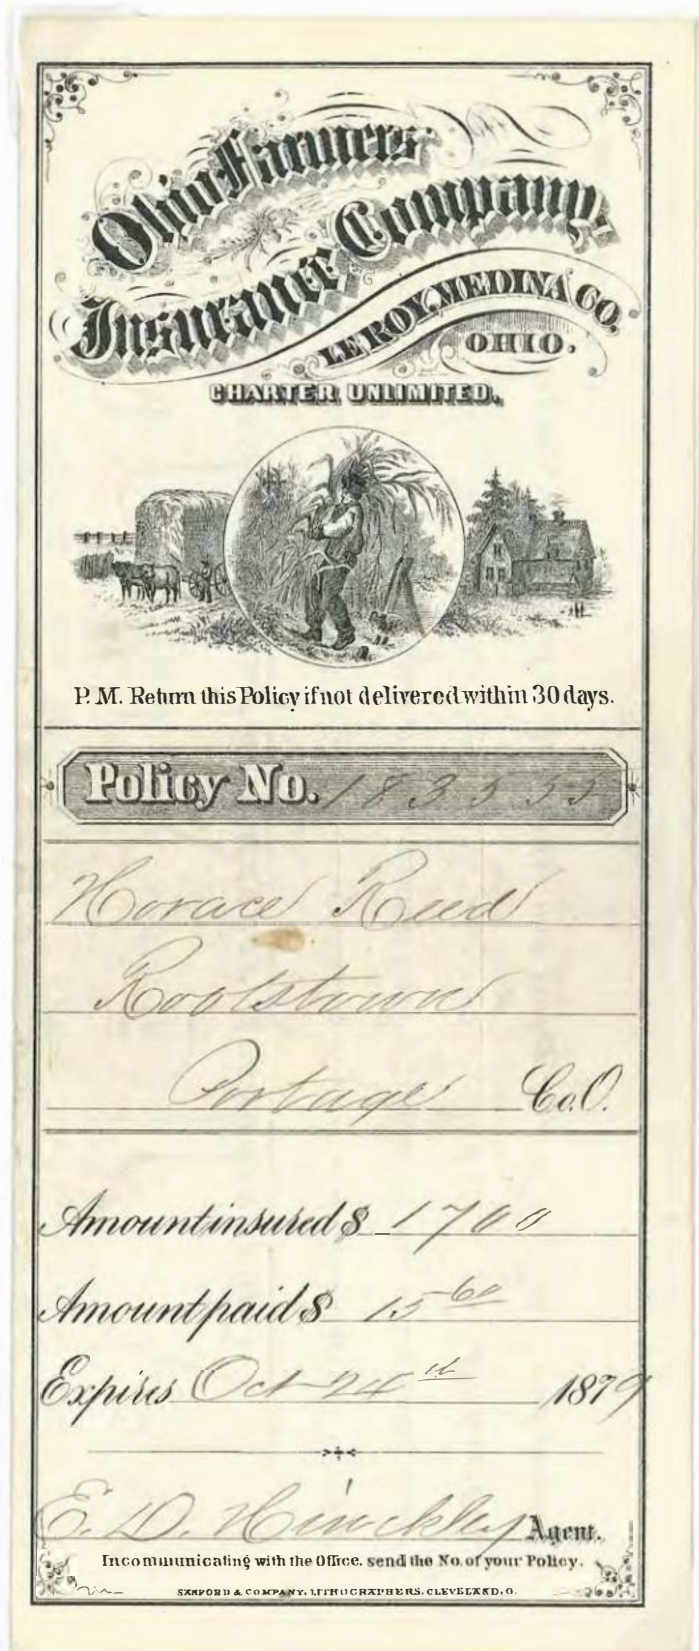 Ohio Farmers
Insurance Company,
LEROY, MEDINA CO.
OHIO.
CHARTER UNLIMITED.
P. M. Return this Policy if not delivered within 30 days.
Policy No. 183555
Horace Reed
Rootstown
Portage Co. O.
Amount insured $ 1700
Amount paid $ 15 60
Expires Oct 24th 1879
E. D. Hinckley Agent.
In communicating with the Office. send the No. of your Policy.
SANFORD & COMPANY, LITHOGRAPHERS, CLEVELAND, O.